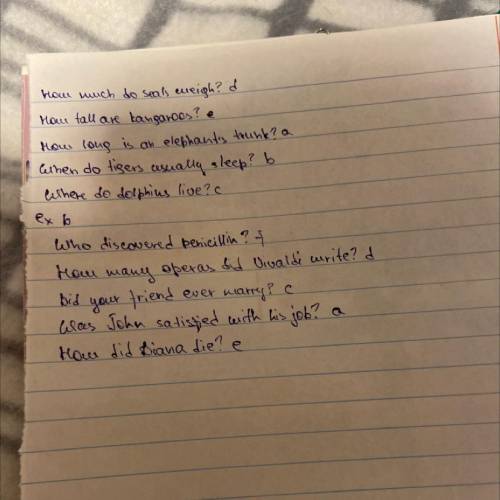 How much do seals weigh? d
How tall are kangaroos? e
How long is an elephants trunk? a
When do tigers usually sleep? b
Where do dolphins live? c
ex b
Who discovered penicillin? f
How many operas did Vivaldi write? d
Did your friend ever marry? c
Was John satisfied with his job? a
How did Diana die? e